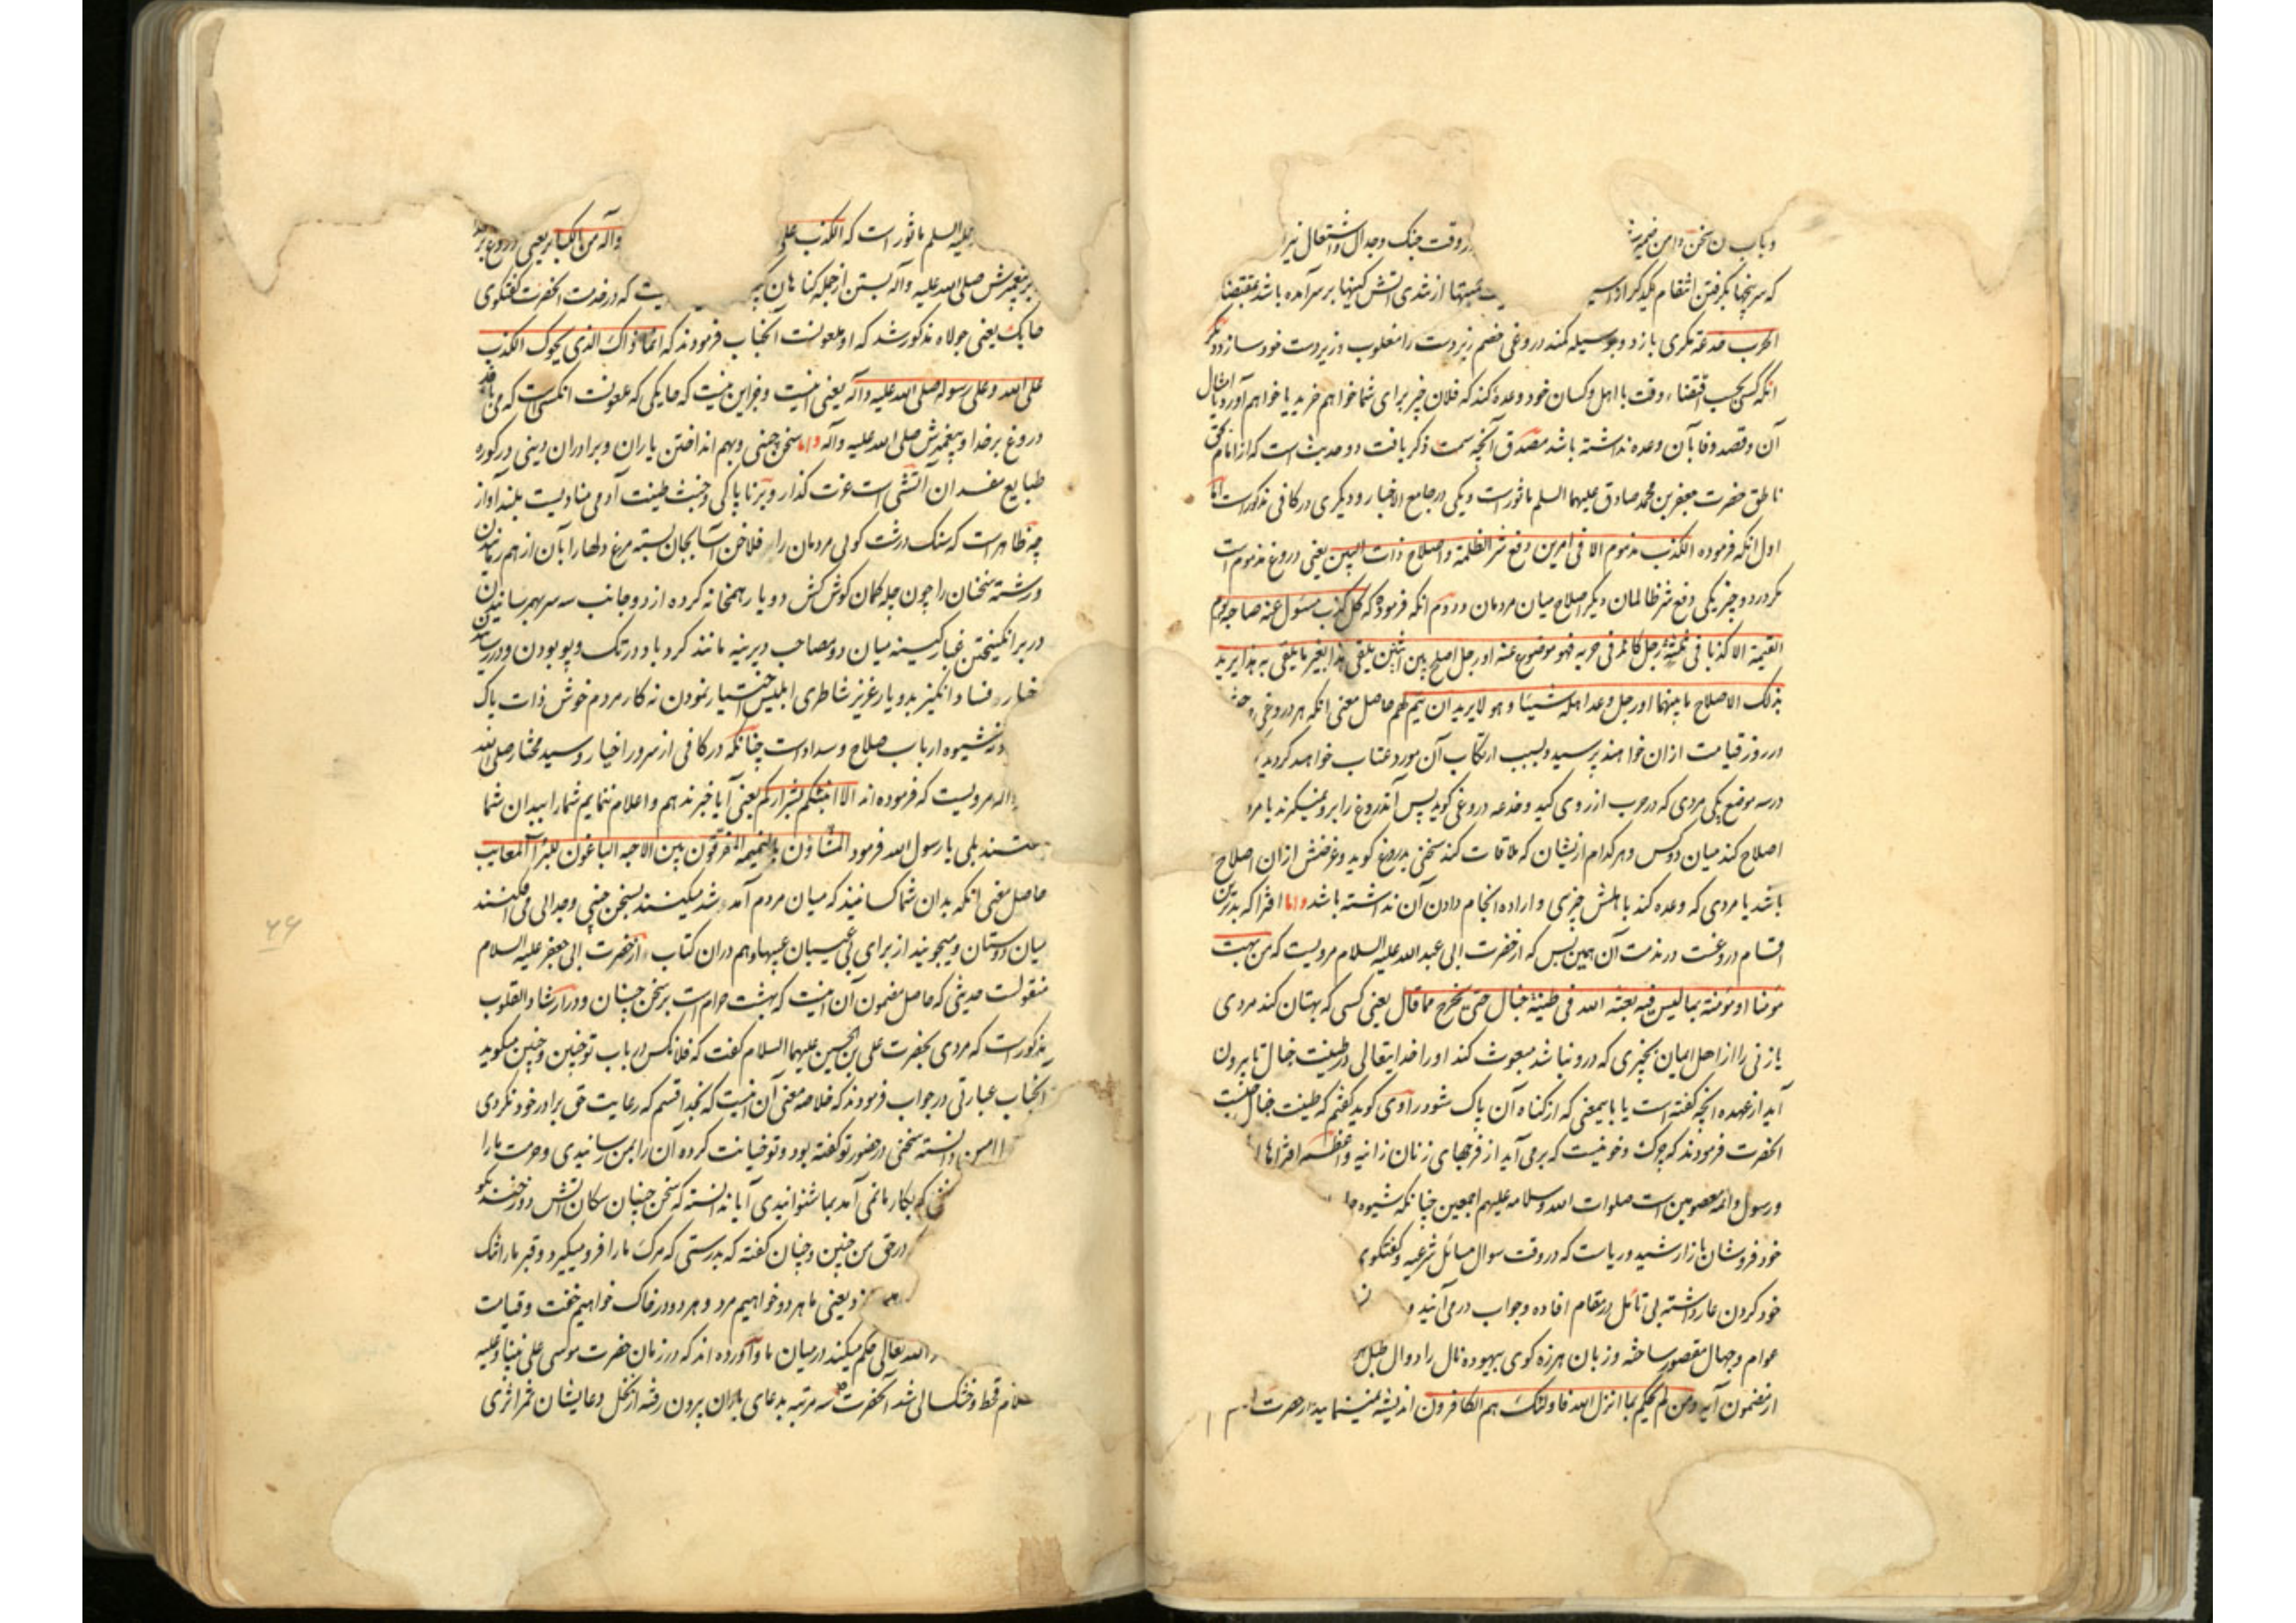 در وقت جنک وجدال واشتعال
که سرپنجها بکرفتن انتقام یکدیکر از تندی آتش کینها برآمده باشد بمقتضا
الحرب خدعة مکری بازد وبوسیله کمند دروغی خصم زبردست را مغلوب وزیردست خود سازد دیکر
آنکه کسی بحسب اقتضاء وقت با اهل وکسان خود وعده کند که فلان چیز برای شما خواهم خرید یا خواهم آورد وامثال
آن وقصد وفا بآن وعده نداشته باشد مصدق آنچه سمت ذکر یافت دو حدیث است که از امام بحق
ناطق حضرت جعفر بن محمد صادق علیهما السلم ماثور است ویکی در جامع الاخبار ودیکری در کافی مذکور است اما
اول آنکه فرموده الکذب مذموم الا فی امرین دفع شر الظلمة واصلاح ذات البین یعنی دروغ مذموم است
مکر در دو چیز یکی دفع شر ظالمان دیکر اصلاح میان مردمان ودوم آنکه فرموده که کل کذب مسئول عنه صاحبه یوم
القیمة الا کذبا فی ثلثة رجل کائد فی حربه فهو موضوع عنه او رجل اصلح بین اثنین یلقی هذا بغیر ما یلقی به هذا یرید
بذلک الاصلاح ما بینهما او رجل وعد اهله شیئا وهو لا یرید ان یتم لهم حاصل معنی آنکه هر دروغی
در روز قیامت از ان خواهند پرسید وبسبب ارتکاب آن مورد عتاب خواهند کردید
در سه موضع یکی مردی که در حرب از روی کید وخدعه دروغی کوید پس آندروغ را برو نمیکیرند یا مرد
اصلاح کند میان دو کس وهر کدام از یشان که ملاقات کند سخنی بدروغ کوید وغرضش از ان اصلاح
باشد یا مردی که وعده کند با اهلش چیزی واراده انجام دادن آن نداشته باشد واما افترا که بدترین
اقسام دروغست در مذمت آن همین بس که از حضرت ابی عبد الله علیه السلام مرویست که من بهت
مؤمنا او مؤمنة بما لیس فیه بعثه الله فی طینة خبال حتی یخرج مما قال یعنی کسی که بهتان کند مردی
یا زنی را از اهل ایمان بچیزی که درو نباشد مبعوث کند او را خدایتعالی در طینت خبال تا بیرون
آید از عهده آنچه کفته است یا باینمعنی که از کناه آن پاک شود راوی کوید کفتم که طینت خبال چیست
آنحضرت فرمودند که چرک وخونیست که برمی آید از فرجهای زنان زانیه واعظم افتراها
ورسول وائمه معصومین است صلوات الله وسلامه علیهم اجمعین چنانکه شیوه
خود فروشان بازار شید وریاست که در وقت سوال مسائل شرعیه وکفتکوی
خود کردن عار داشته بی تامل در مقام افاده وجواب درمی آیند و
عوام وجهال مقصور ساخته وزبان هرزه کوی بیهوده نال را دوال طبل
از مضمون آیه ومن لم یحکم بما انزل الله فاولئک هم الکافرون اندیشه نمینمایند از حضرت
علیه السلم ماثور است که الکذب علی وآله من الکبائر یعنی دروغ بر خدا
وبر پیغمبرش صلی الله علیه وآله بستن از جمله کناهان که در خدمت آنحضرت کفتکوی
حایک یعنی جولاه مذکور شد که او ملعونست آنجناب فرمودند که انما ذاک الذی یحوک الکذب
علی الله وعلی رسوله صلی الله علیه وآله یعنی اینست وجز این نیست که حایکی که ملعونست آنکس است که می بافد
دروغ بر خدا وپیغمبرش صلی الله علیه وآله واما سخن چینی وبهم انداختن یاران وبرادران دینی در کوره
طبایع مفسدان آتشی است عزت کداز وبر ناپاکی وخبث طینت آدمی منادیست بلند آواز
چه ظاهر است که سنک درشت کوئی مردمان را در فلاخن آسا بجان بسته مرغ دلها را بآن از هم رمانیدن
ورشته سخنان را چون چله کمان کوش کش دو یار همخانه کرده از دو جانب سر بسر رسانیدن
در برانکیختن غبار کینه میان دو مصاحب دیرینه مانند کردباد در تک وپو بودن ودر رسانیدن
اخبار فساد انکیز بدو یار عزیز شاطری ابلیس اختیار نمودن نه کار مردم خوش ذات پاک
ونه شیوه ارباب صلاح وسداد است چنانکه در کافی از سرور اخیار وسید مختار صلی الله
وآله مرویست که فرموده اند الا انبئکم بشرارکم یعنی آیا خبر ندهم واعلام ننمایم شما را ببدان شما
کفتند بلی یا رسول الله فرمود المشاؤن بالنمیمة المفرقون بین الاحبة الباغون للبراء المعایب
حاصل معنی آنکه بدان شما کسانیند که میان مردم آمد وشد میکنند بسخن چینی وجدائی می افکنند
میان دوستان ومیجویند از برای بی عیبان عیبها وهم در ان کتاب از حضرت ابی جعفر علیه السلام
منقولست حدیثی که حاصل مضمون آن اینست که بهشت حرام است بر سخن چینان ودر ارشاد القلوب
مذکور است که مردی بحضرت علی بن الحسین علیهما السلام کفت که فلانکس در باب تو چنین وچنین میکوید
آنجناب عبارتی در جواب فرمودند که خلاصه معنی آن اینست که بخدا قسم که رعایت حق برادر خود نکردی
را امین دانسته سخنی در حضور تو کفته بود وتو خیانت کرده آن را بمن رسانیدی وحرمت ما را
که بکار ما نمی آمد بما شنوانیدی آیا ندانسته که سخن چینان سکان آتش دوزخند بکو
در حق من چنین وچنان کفته که بدرستی که مرک ما را فرو میکیرد وقبر ما را تنک
یعنی ما هر دو خواهیم مرد وهر دو در خاک خواهیم خفت وقیامت
الله تعالی حکم میکند در میان ما وآورده اند که در زمان حضرت موسی علی نبینا وعلیه
قحط وخشکسالی شد آنحضرت سه مرتبه بدعای باران بیرون رفته از نخل دعایشان ثمر اثری